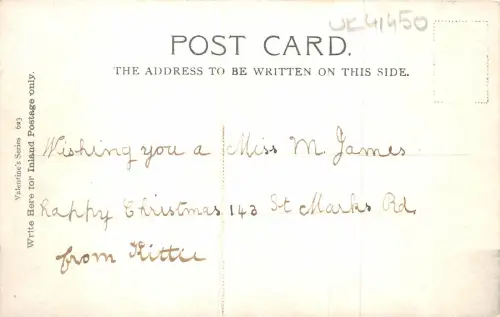 UK41450
POST CARD.
THE ADDRESS TO BE WRITTEN ON THIS SIDE.
Valentine's Series 693
Write Here for Inland Postage only.
Wishing you a
happy Christmas
from Kittie
Miss M. James
143 St Marks Rd.